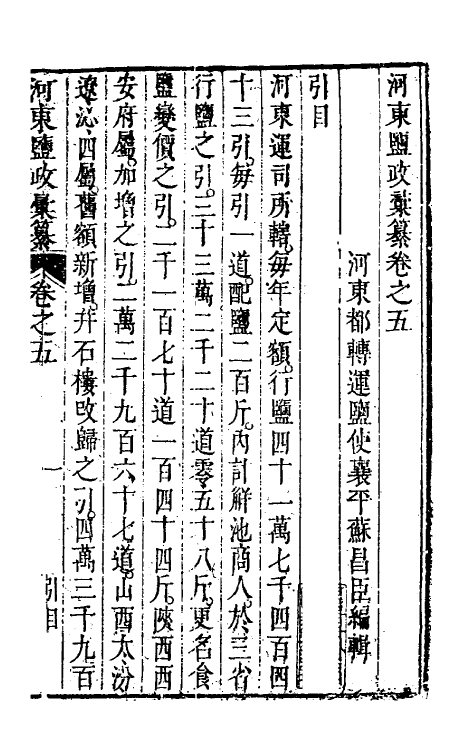 河東鹽政彙纂卷之五
河東都轉運鹽使襄平蘇昌臣編輯
引目
河東運司所轄每年定額行鹽四十一萬七千四百四
十三引每引一道配鹽二百斤內計解池商人於三省
行鹽之引三十三萬二千二十道零五十八斤更名食
鹽變價之引二千一百七十道一百四十四斤陝西西
安府屬加增之引二萬二千九百六十七道山西太汾
遼沁四屬舊額新增幷石樓改歸之引四萬三千九百
河東鹽政彙纂 卷之五 一 引目